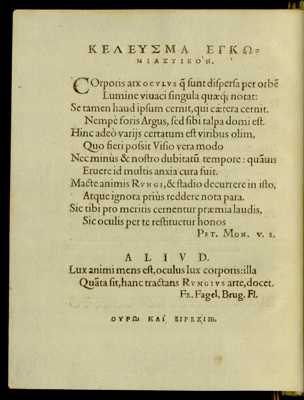 ΚΕΛΕΥΣΜΑ ΕΓΚΩ-
ΜΙΑΣΤΙΚΟΝ.
COrporis arx OCVLVS q̃ sunt dispersa per orbẽ
Lumine viuaci singula quæq; notat:
Se tamen haud ipsum cernit, qui cætera cernit.
Nempè foris Argus, sed sibi talpa domi est.
Hinc adeò varijs certatum est viribus olim,
Quo fieri possit Visio vera modo
Nec minùs & nostro dubitatũ tempore: quãuis
Eruere id multis anxia cura fuit.
Macte animis RVNGI, & stadio decurrere in isto,
Atque ignota priùs reddere nota para.
Sic tibi pro meritis cernentur præmia laudis,
Sic oculis per te restituetur honos
PET. MON. V. S.
ALIVD.
Lux animi mens est, oculus lux corporis: illa
Quãta sit, hanc tractans RVNGIVS arte, docet.
FR. Fagel, Brug. Fl.